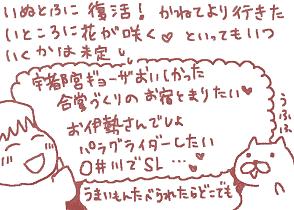 いぬとふに 復活! かねてより行きた
いところに花が咲く♥ といってもいつ
いくかは未定
宇都宮ギョーザおいしかった
合掌づくりのお宿をとまりたい♥
お伊勢さんでしょ
パラグライダーしたい
O井川でSL…♥
うふふ
うまいもんたべられたらどこでも